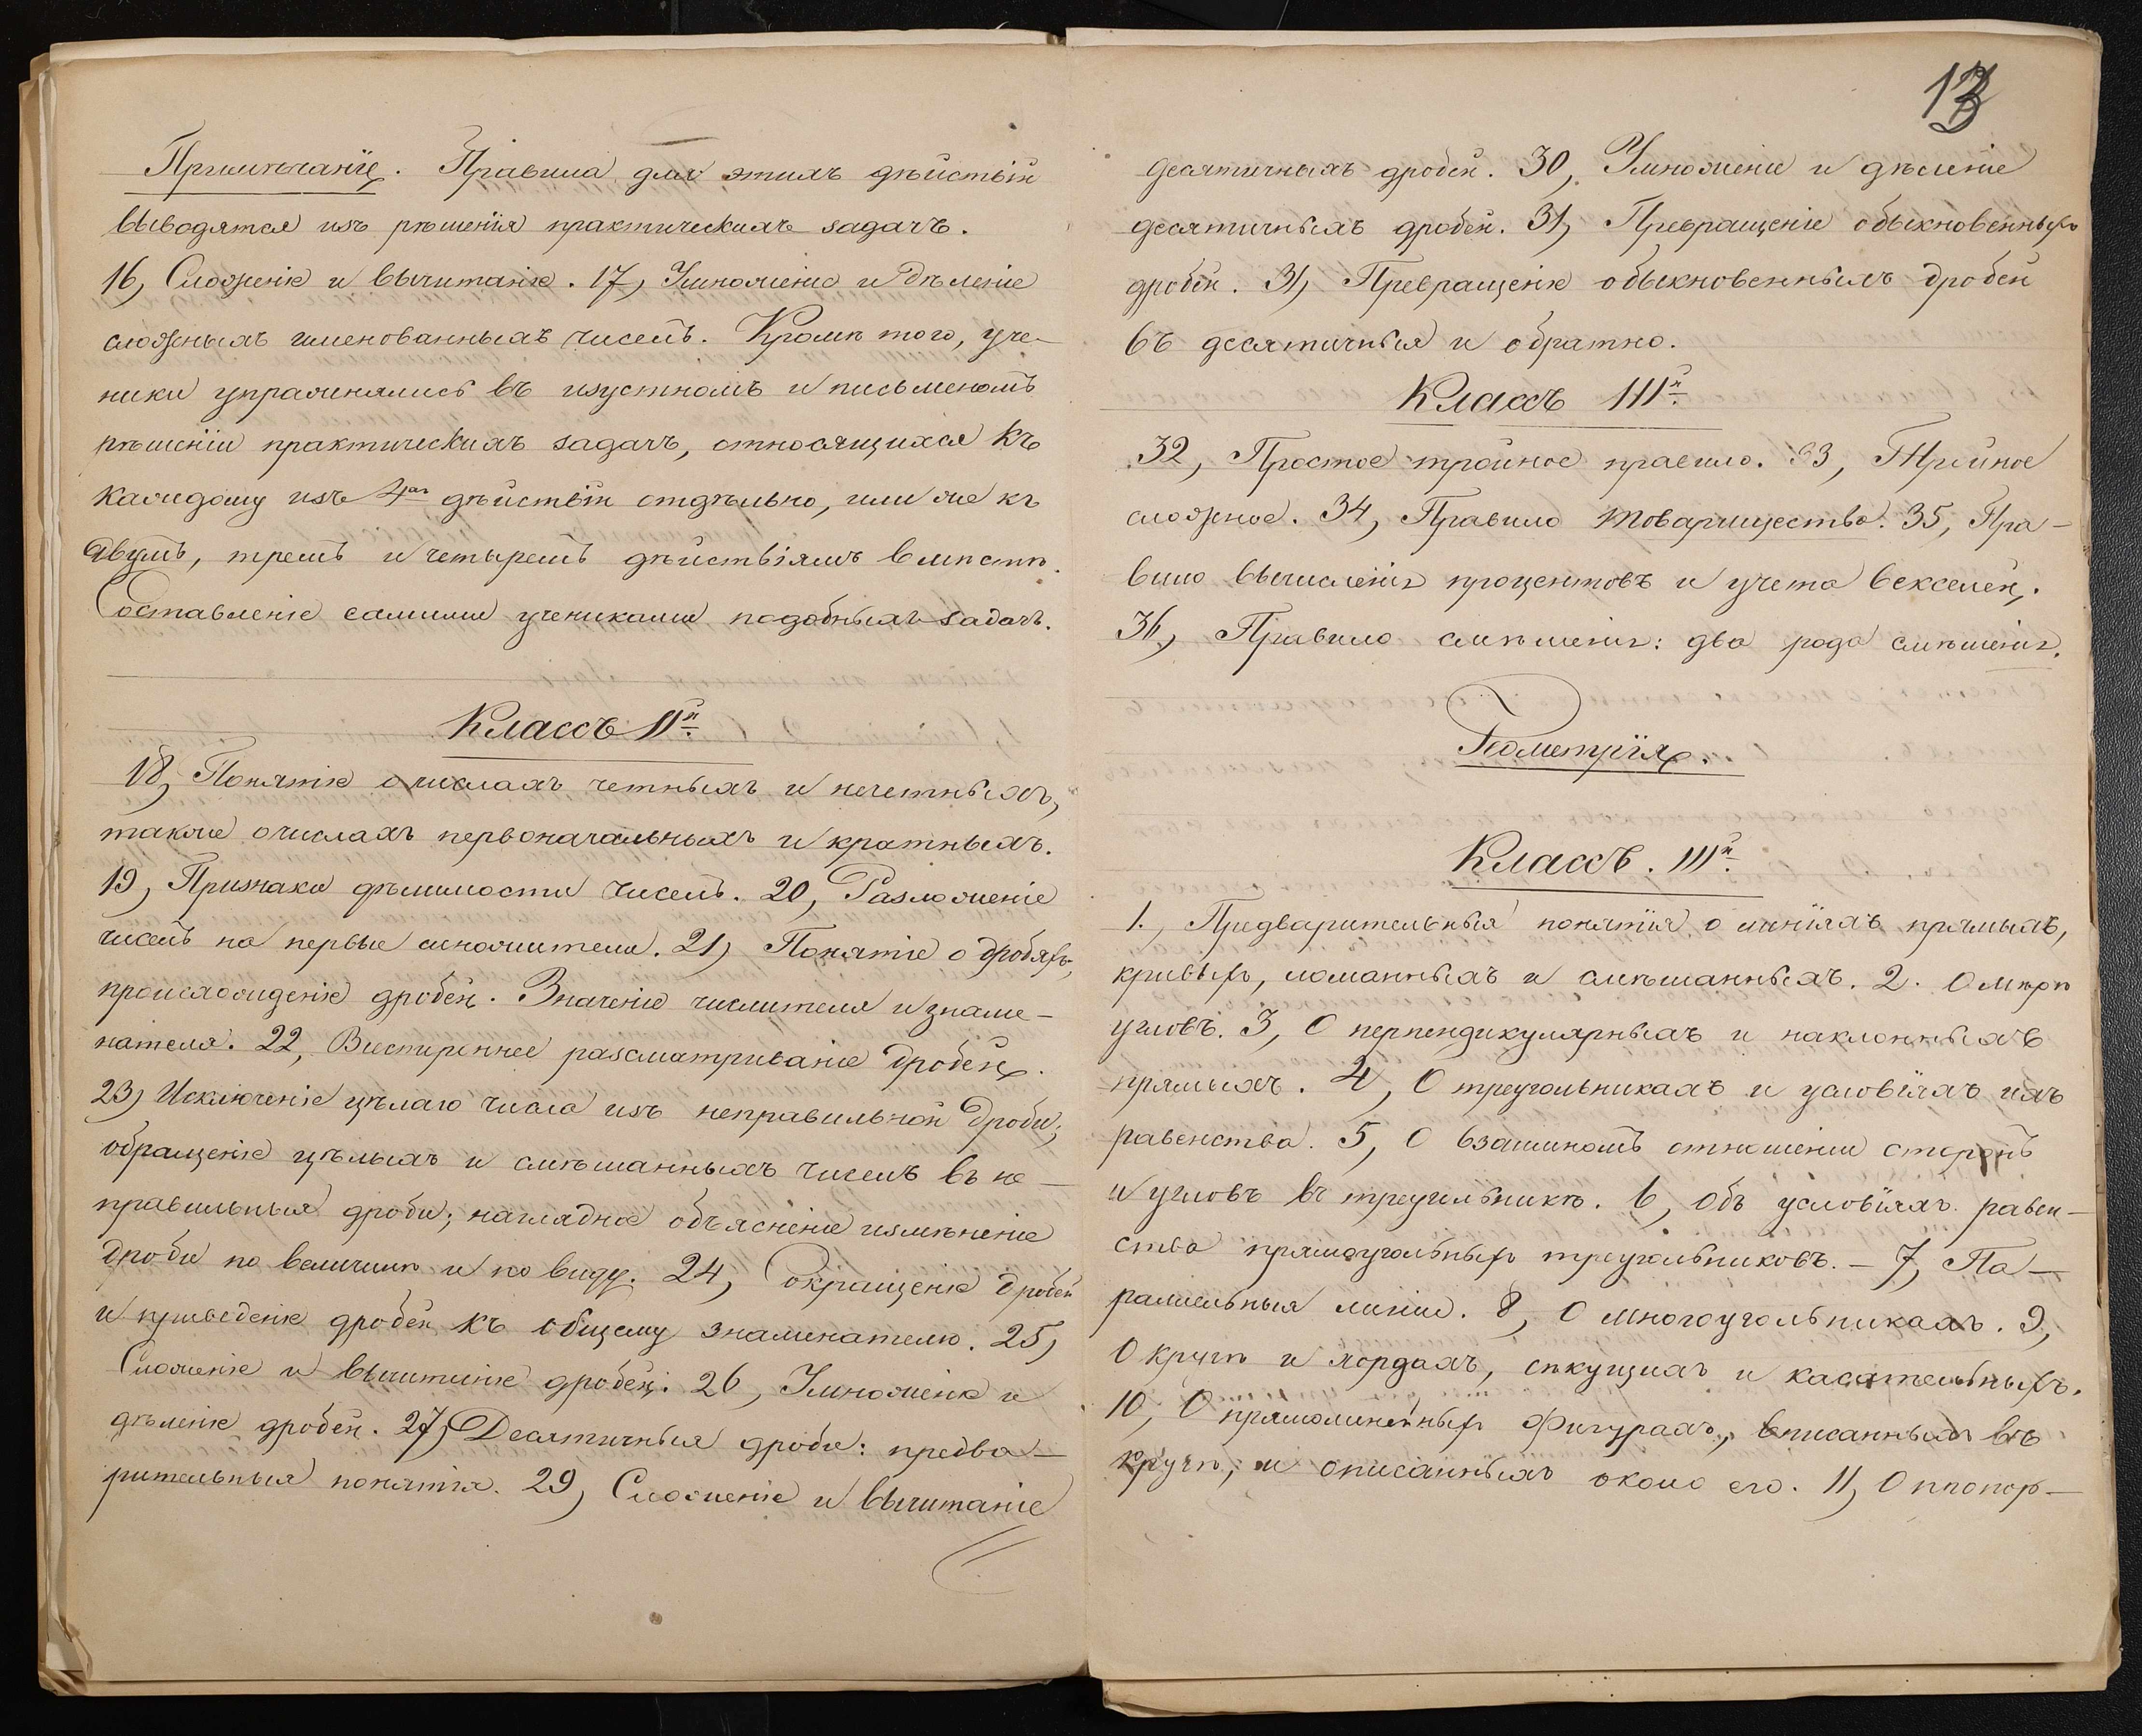 Примѣчаніе. Правила для этихъ дѣйствій
выводятся изъ рѣшенія практическихъ задачъ.
16, Сложеніе и вычитаніе. 17, Умноженіе и дѣленіе
сложныхъ именованныхъ чиселъ. Кромѣ того, уче-
ники упражнялись въ изустномъ и письменомъ
рѣшеніи практическихъ задачъ, относящихся къ
каждому изъ 4хъ дѣйствій отдѣльно, или же къ
двумъ, тремъ и четыремъ дѣйствіямъ вмѣстѣ.
Составленіе самими учениками подобныхъ задачъ.
Классъ IIй.
18, Понятіе о числахъ четныхъ и нечетныхъ,
также о числахъ первоначальныхъ и кратныхъ.
19, Признаки дѣлимости чиселъ. 20, Разложеніе
чиселъ на первые множители. 21, Понятіе о дробяхъ,
происхожденіе дробей. Значеніе числителя и знаме-
нателя. 22, разсматриваніе дробей.
23, Исключеніе цѣлаго числа изъ неправильной дроби;
обращеніе цѣлыхъ и смѣшанныхъ чиселъ въ не-
правильныя дроби; наглядное объясненіе измѣненіе
дроби по величинѣ и по виду. 24, Сокращеніе дробей
и приведеніе дробей къ общему знаменателю. 25,
Сложеніе и вычитаніе дробей. 26, Умноженіе и
дѣленіе дробей. 27, Десятичныя дроби: предва-
рительныя понятія. 29, Сложеніе и вычитаніе
13
десятичныхъ дробей. 30, Умноженіе и дѣленіе
десятичныхъ дробей. 31, Превращеніе обыкновенныхъ
дробей. 31, Превращеніе обыкновенныхъ дробей
въ десятичныя и обратно.
Классъ IIIй.
32, Простое тройное правило. 33, Тройное
сложное. 34, Правило товарищества. 35, Пра-
вило вычисленія процентовъ и учета векселей.
36, Правило смѣшенія: два рода смѣшенія.
Геометрія.
Классъ. IIIй.
1., Предварительныя понятія о линіяхъ прямыхъ,
кривыхъ, ломанныхъ и смѣшанныхъ. 2. О мѣрѣ
угловъ. 3, О перпендикулярныхъ и наклонныхъ
прямыхъ. 4, О треугольникахъ и условіяхъ ихъ
равенства. 5, О взаимномъ отношеніи сторонъ
и угловъ въ треугольникѣ. 6, Объ условіяхъ равен-
ства прямоугольныхъ треугольниковъ. – 7, Па-
раллельныя линіи. 8, О многоугольникахъ. 9,
О кругѣ и хордахъ, сѣкущихъ и касательныхъ.
10, О прямолинейныхъ фигурахъ, вписанныхъ въ
кругѣ, и описанныхъ около его. 11, О пропор-